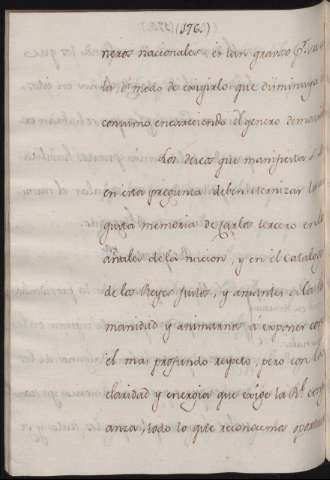 (176.)
neros nacionales es tan gravoso pr. su
lo, ó modo de exigirlo que disminuya
consumo encareciendo el genero demas
Los deseos que manifiesta S.
en esta pregunta deben eternizar la
gusta memoria de Carlos tercero en lo
añales de la nacion, y en el Catalogo
de los Reyes Justos, y amantes de la hu
manidad y animarnos a exponer con
el mas profundo respeto, pero con la
claridad y energia que exige la Rl. conf
anza, todo lo que reconocemos oportun